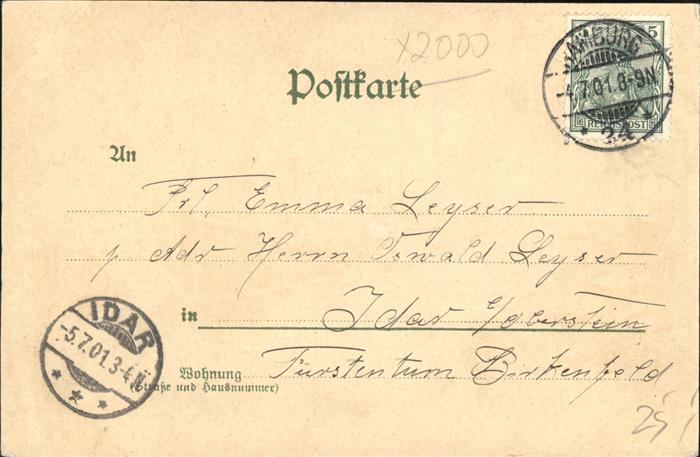 x2000
5
HAMBURG
4.7.01.8-9N
* 24
REICHSPOST
Postkarte
An
Frl. Emma Leyser
p Adr Herrn Oswald Leyser
in Idar b/oberstein
Wohnung Fürstentum Birkenfeld
(Straße und Hausnummer)
IDAR
-5.7.01.3-4N
* * *
25